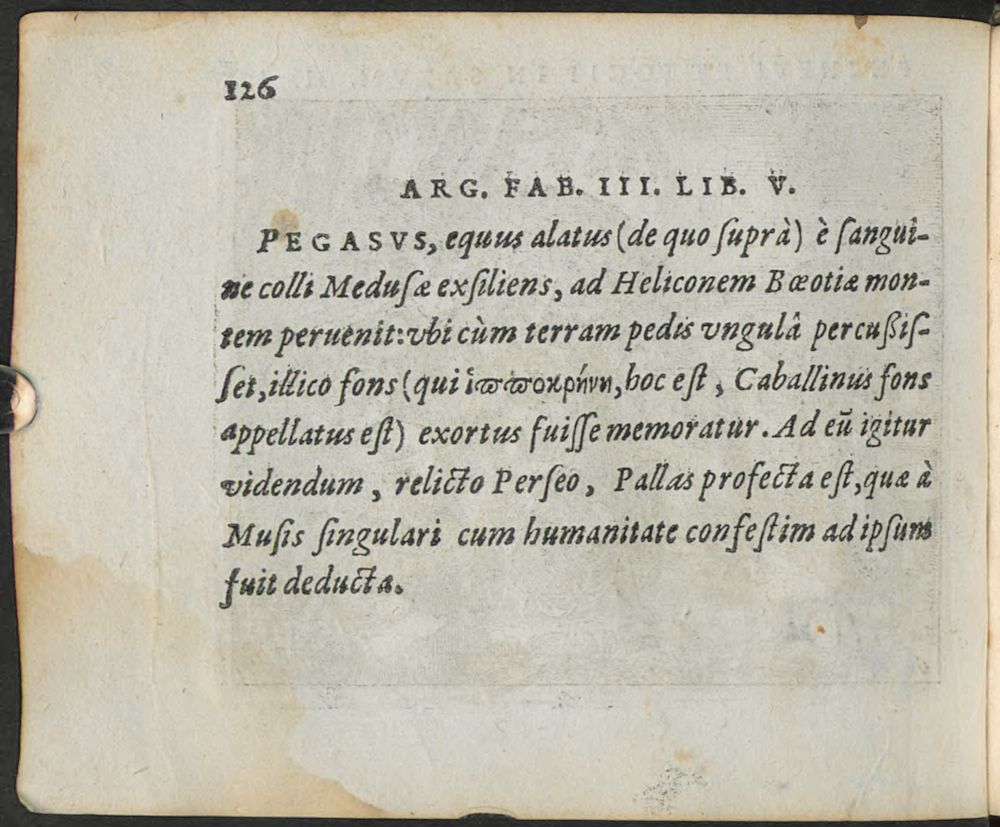 126
ARG. FAB. III. LIB. V.
PEGASVS, equus alatus (de quo ſuprà) è ſangui-
ne colli Meduſæ exſiliens, ad Heliconem Bœotiæ mon-
tem peruenit: vbi cùm terram pedis vngulâ percuſsiſ-
ſet, illico fons (qui ἱϖϖοκρήνη, hoc eſt, Caballinus fons
appellatus eſt) exortus fuiſſe memoratur. Ad eū igitur
videndum, relicto Perſeo, Pallas profecta eſt, quæ à
Muſis ſingulari cum humanitate confeſtim ad ipſum
fuit deducta.